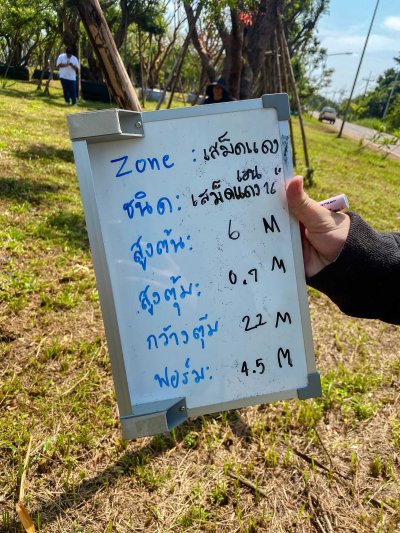 Zone : เสม็ดแดง
เอน
ชนิด : เสม็ดแดง 16"
สูงต้น : 6 M
สูงตุ้ม : 0.7 M
กว้างตุ้ม 22 M
ฟอร์ม : 4.5 M